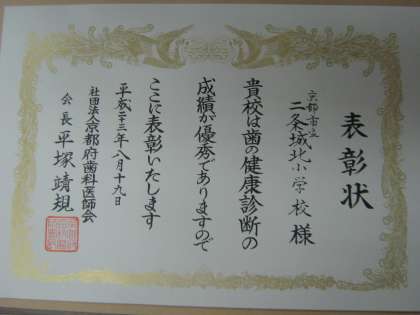 表彰状
京都市立
二条城北小学校 様
貴校は歯の健康診断の
成績が優秀でありますので
ここに表彰いたします
平成二十三年八月十九日
社団法人京都府歯科医師会
会長 平塚靖規